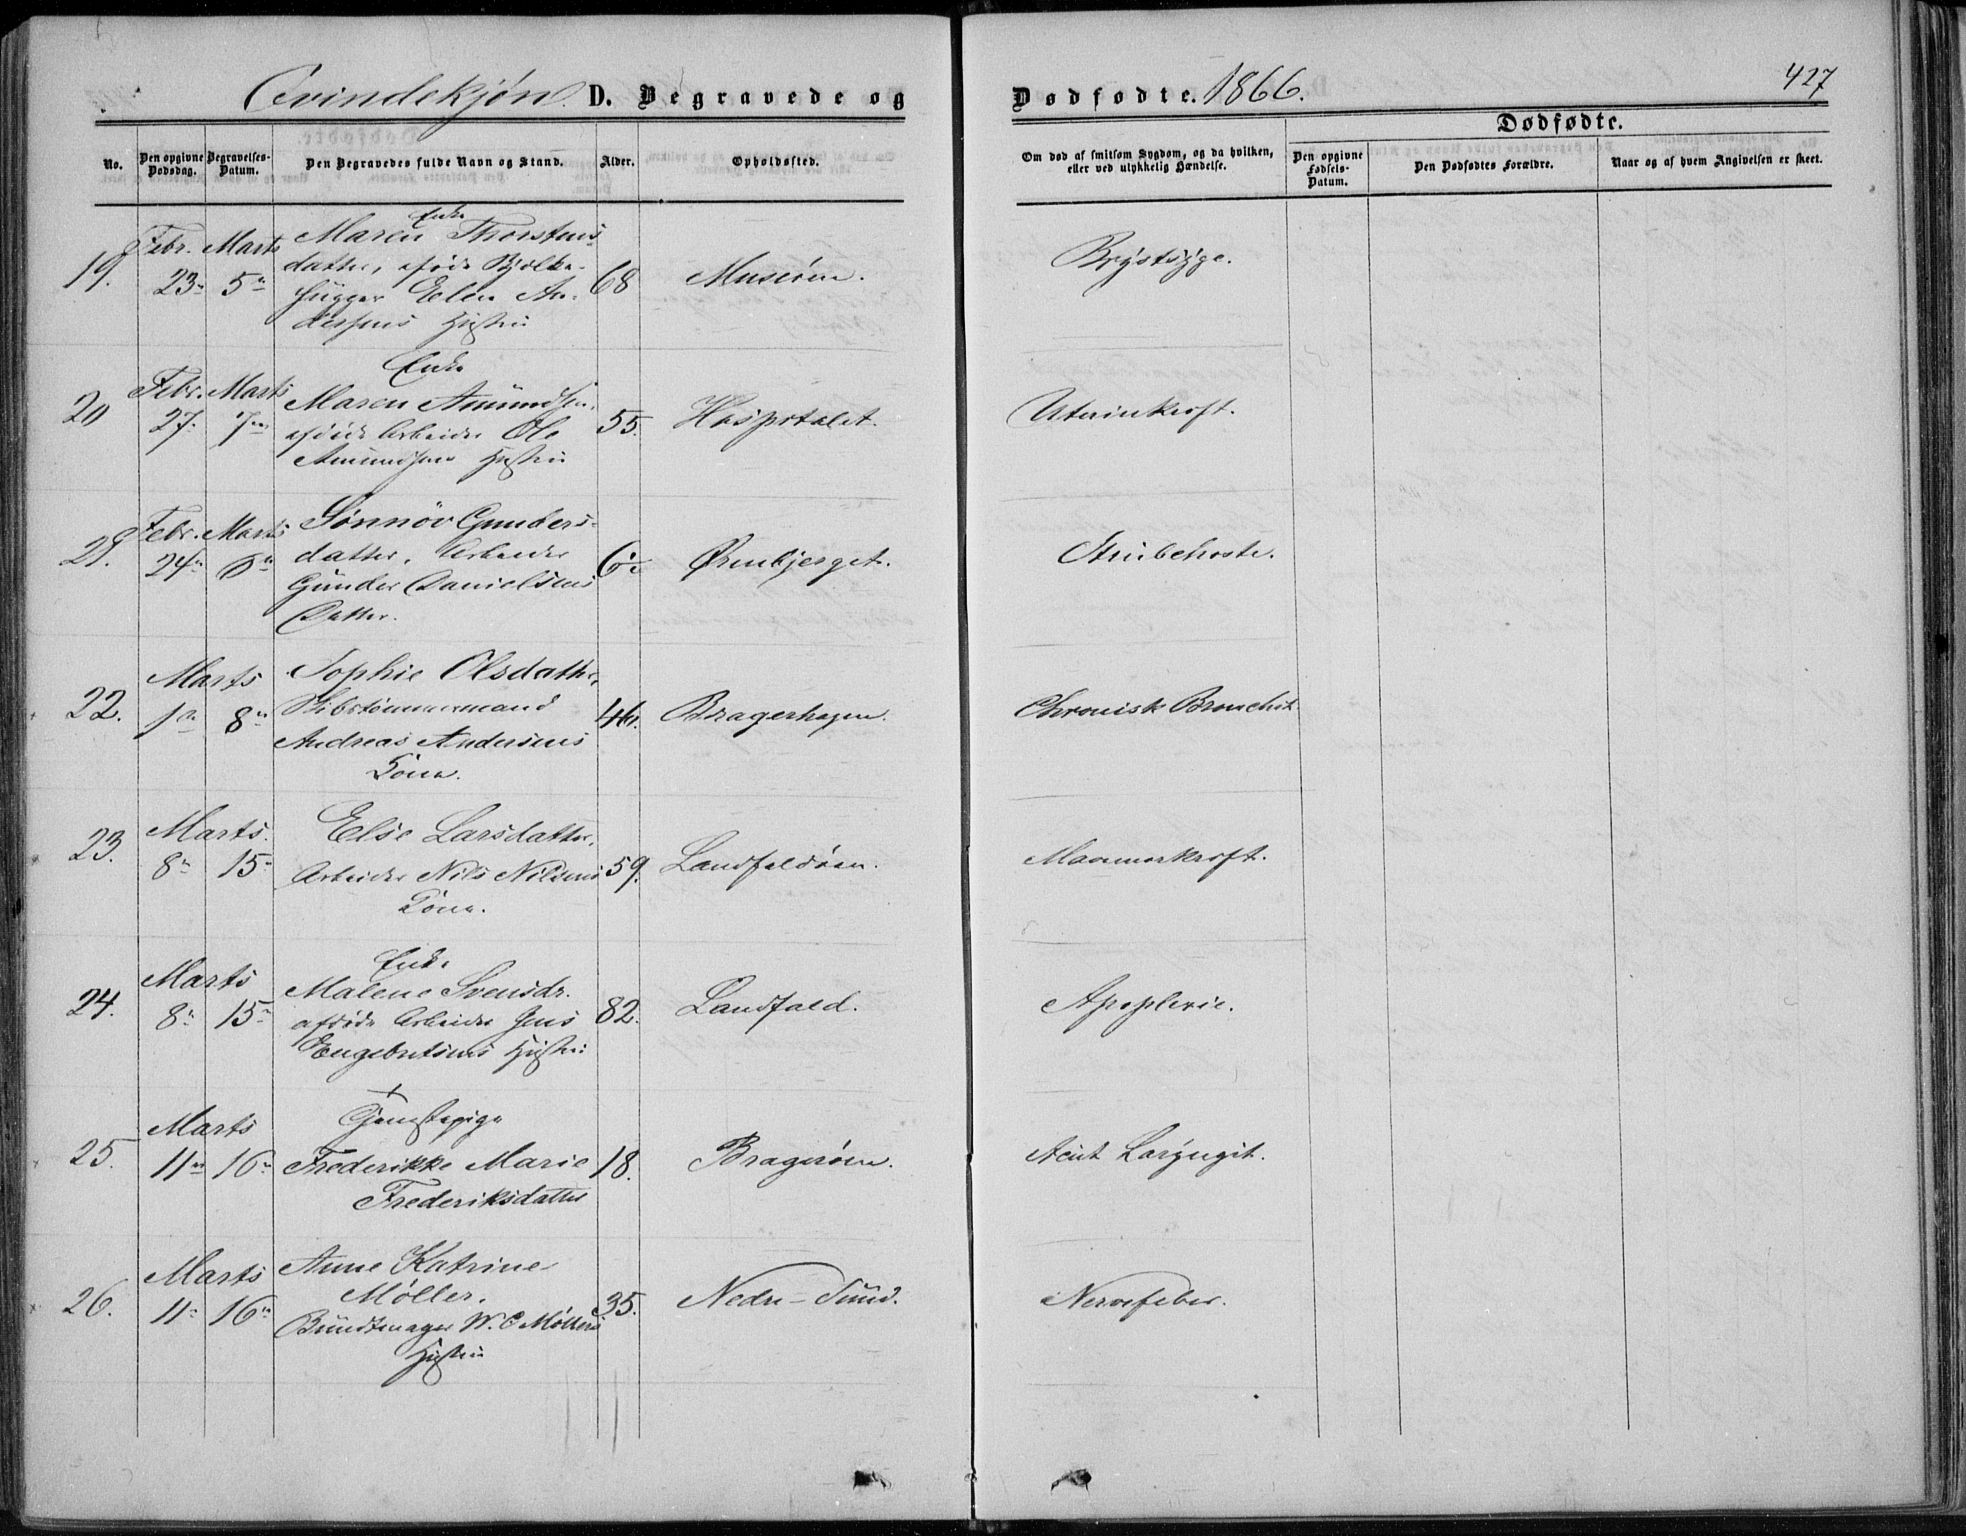 Qvindekjøn. D. Begravede og Dødfødte. 1866. 427
Dødfødte.
No. Den opgivne Dødsdag. Begravelses-Datum. Den Begravedes fulde Navn og Stand. Alder. Opholdssted. Om død af smitsom Sygdom, og da hvilken, eller ved ulykkelig Hændelse. Den opgivne Fødsels-Datum. Den Dødfødtes Forældre. Naar og af hvem Angivelsen er skeet.
Enke
Febr. Marts Maren Thorstens-
19. 23 5 datter, afdøde Bjelke- 68 Musøen. Brystsyge.
hugger Elen An-
dersens Hustru
Enke
Febr. Marts Maren Amundsen,
20 27 7 afdøde Arbeider Ole 55. Hospitalet. Uterinkræft.
Amundsens Hustru
Febr. Marts Sønnöv Gunders-
21. 24 6 datter, Arbeider Ørenbjerget. Strubehoste.
Gunder Danielsens
Datter.
Marts Sophie Olsdatter,
22. 1 8 Skibstømmermand 46. Bragerhagen. Chronisk Bronchit
Andreas Andersens
Kone.
Marts Else Larsdatter,
23. 8 15 Arbeider Nils Nilsens 59. Landfaldøen. Mammarkræft.
Kone.
Enke
Marts Malene Svensdr.
24. 8 15 afdøde Arbeider Jens 82. Landfald. Apoplexie.
Engebretsens Hustru
Marts Tjenestepige
25. 11 16 Frederikke Marie 18. Bragerøen. Acut Laryngit.
Frederiksdatter
Marts Anne Katrine
Møller,
26. 11 16 Bundtmager W. C Møllers 35. Nedre-Sund. Nervefeber.
Hustru